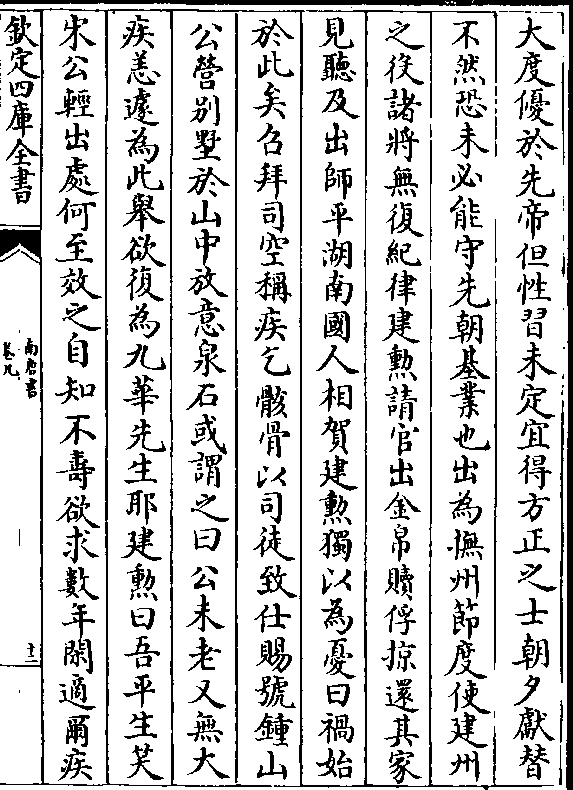 大度優於先帝但性習未定宜得方正之士朝夕獻替
不然恐未必能守先朝基業也出為撫州節度使建州
之役諸將無復紀律建勲請官出金帛贖俘掠還其家
見聽及出師平湖南國人相賀建勲獨以為憂曰禍始
於此矣召拜司空稱疾乞骸骨以司徒致仕賜號鍾山
公營别墅於山中放意泉石或謂之曰公未老又無大
疾恙遽為此舉欲復為九華先生耶建勲曰吾平生笑
宋公輕出處何至效之自知不壽欲求數年閑適爾疾
欽定四庫全書
南唐書
卷九
十二